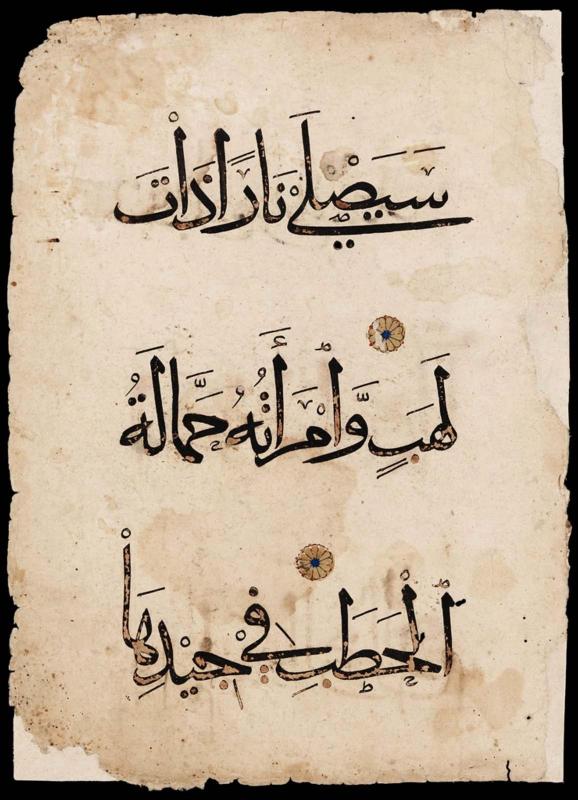 سَيَصْلَىٰ نَارًا ذَاتَ
لَهَبٍ وَّامْرَأَتُهُ حَمَّالَةُ
الْحَطَبِ فِي جِيْدِهَا